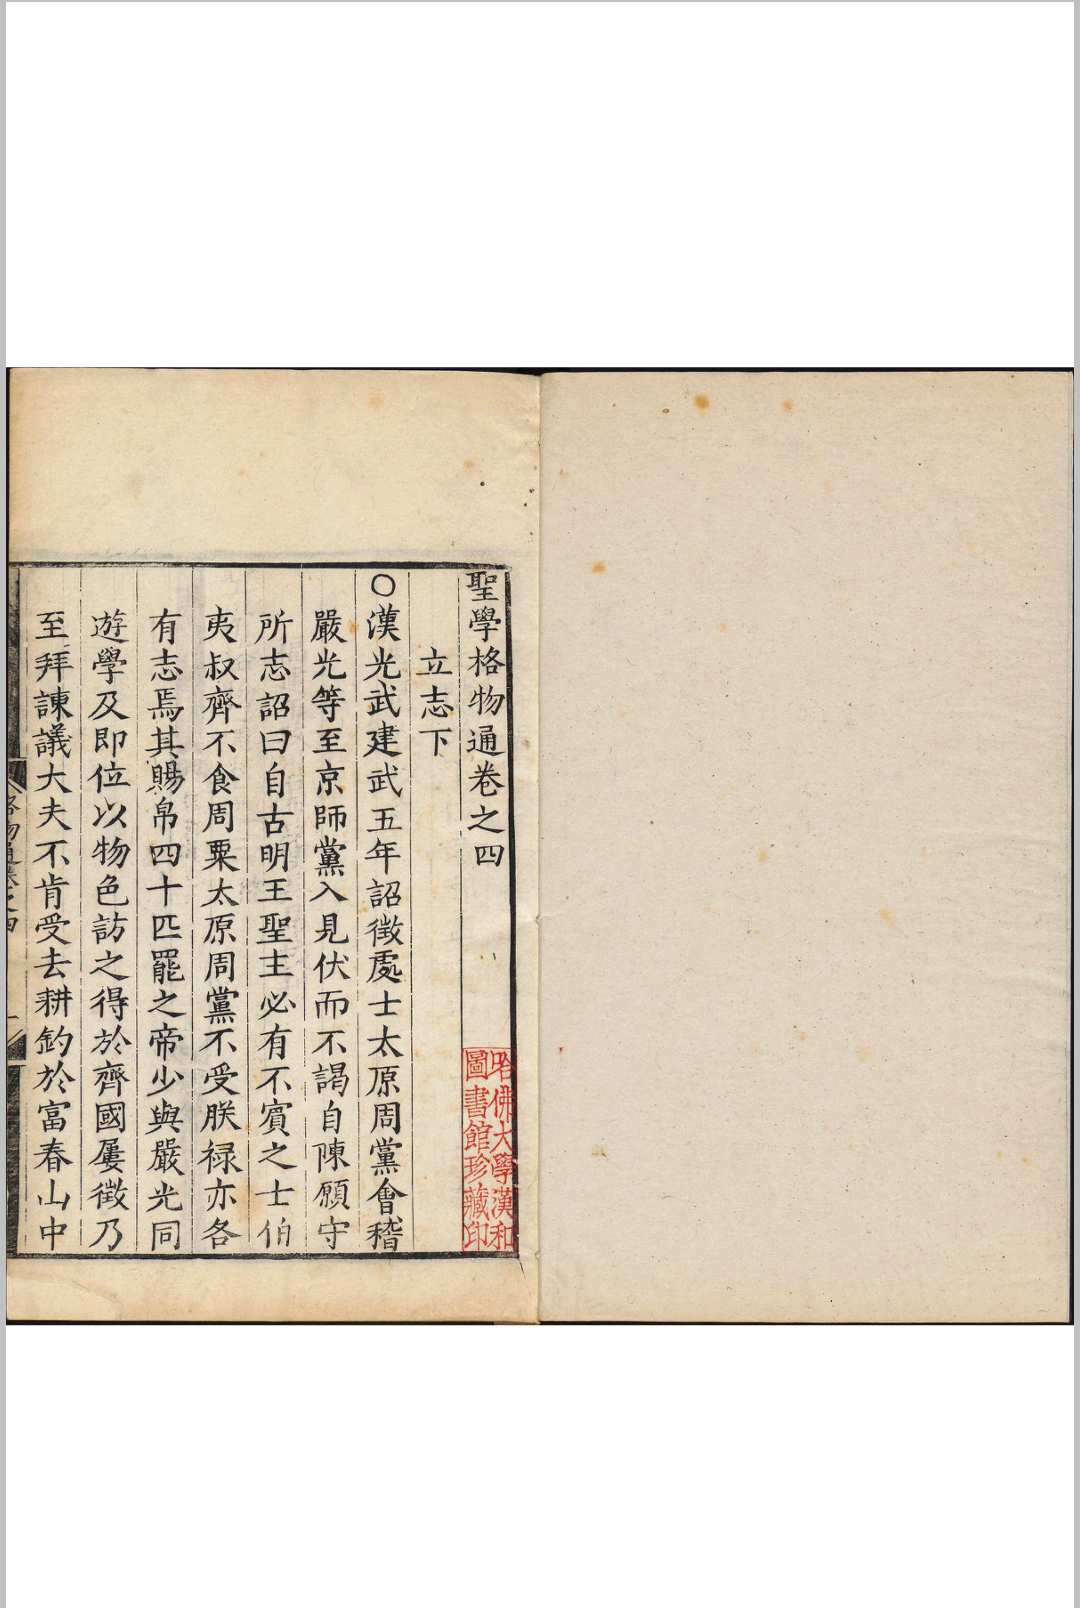 聖學格物通卷之四
哈佛大學漢和
圖書館珍藏印
立志下
○漢光武建武五年詔徵處士太原周黨會稽
嚴光等至京師黨入見伏而不謁自陳願守
所志詔曰自古明王聖主必有不賓之士伯
夷叔齊不食周粟太原周黨不受朕禄亦各
有志焉其賜帛四十匹罷之帝少與嚴光同
遊學及即位以物色訪之得於齊國屢徵乃
至拜諌議大夫不肯受去耕釣於富春山中
格物通卷之四
一